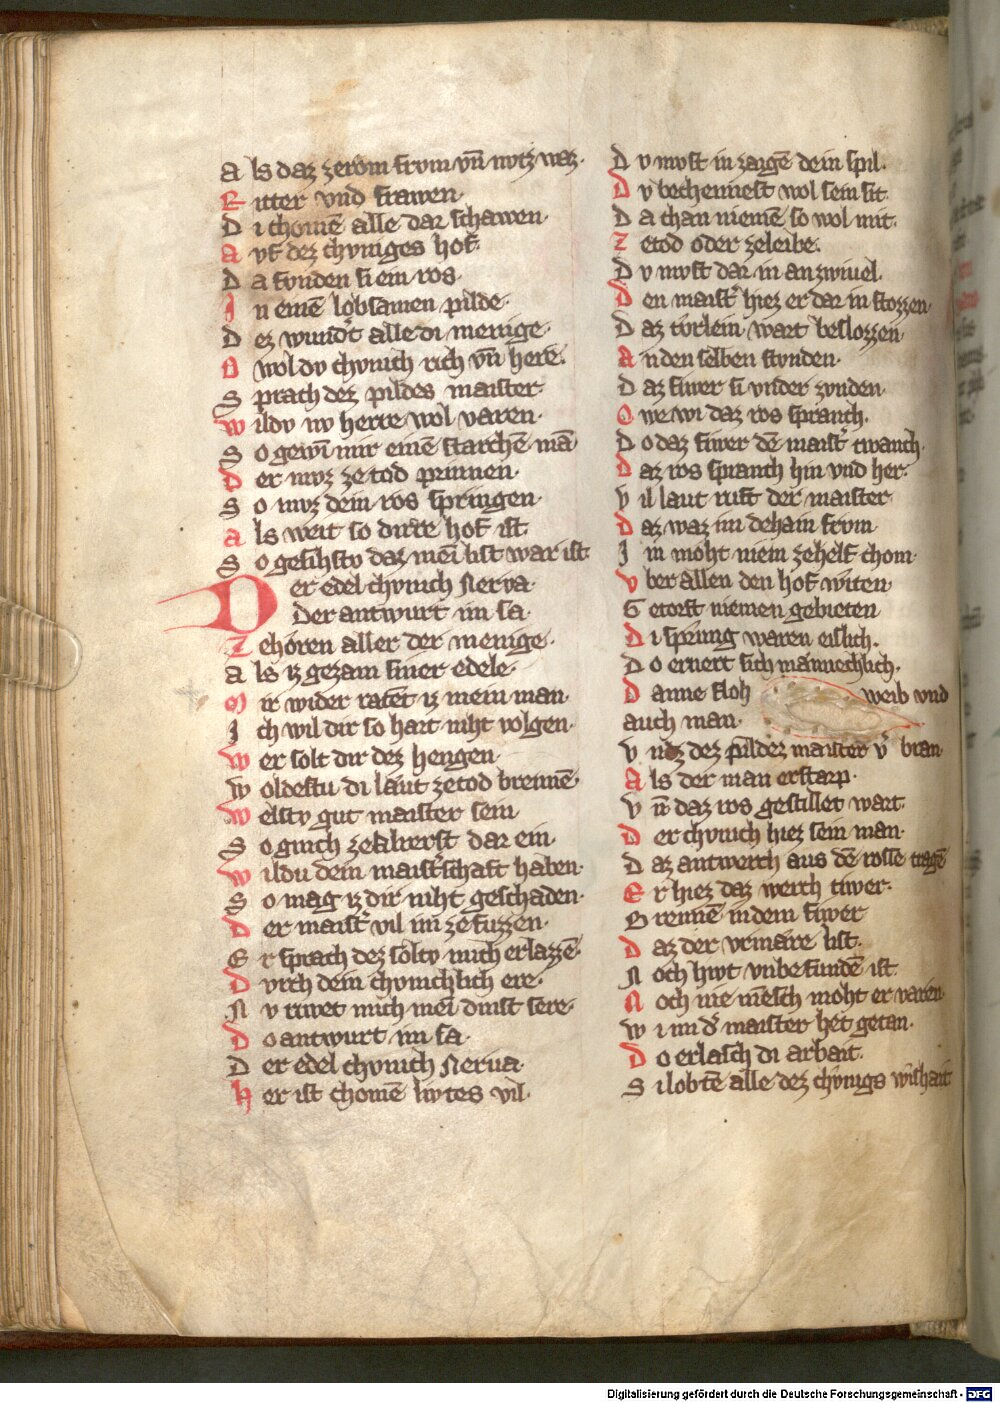 A ls daz zerom frvm vn̄ nvtz waz·
R itter vnd frawen·
D i chomē alle dar schawen·
A vf dez chvniges hof·
D a fvnden si ein ros·
J n einē lobsamen pilde·
D ez wundt alle di menige·
N v wol dv chvnich rich vn̄ here·
S prach dez pildes maister·
W il dv nv herre wol varen·
S o gewī mir einē starchē mā
D er mvz ze tod prinnen·
S o mvz dein ros springen·
A ls weit so dirre hof ist·
S o gesihstv daz mei list war ist
D er edel chvnich Nerva·
Der antwurt im sa·
Z ehoren aller der menige·
A ls iz gezam siner edele·
M ir wider ratēt iz mein man·
J ch wil dir so hart niht volgen·
W er solt dir dez hengen·
W oldestu di laut ze tod brennē·
W elstv gut maister sein
S o grich ze dar ein·
W ildu dein maistschaft haben·
S o mag iz dir niht geschaden·
D er maist vil im ze fuzzen·
E r sprach dez soltv mich erlazzē·
D vrch dein chvnichlich ere·
N v riwet mich mei dinst sere·
D o antwurt im sa·
D er edel chvnich Nerua·
H er ist chomē livtes vil·
D v mvst in zaigē dein spil·
D v bechennest wol sein sit·
D a chan niemē so wol mit·
Z e tod oder ze leibe·
D v mvst dar in an zwiuel·
D en maist hiez er dar in stozzen·
D az tvrlein wart beslozzen·
A n den selben stvnden·
D az fiwer si vnder zvnden·
O we wi daz ros spranch·
D o daz fiwer dē maist twanch·
D az ros spranch hin vnd her·
V il laut rvft der maister
D az waz im dehain frvm
J m moht niem ze helf chom·
V ber allen den hof witen·
G etorst niemen gebieten
D i sprung waren eislich·
D o erwert sich mannechlich·
D anne floh weib vnd
auch man·
V nz dez pildez maister v bran
A ls der man erstarp·
V n̄ daz ros gestillet wart·
D er chvnich hiez sein man·
D az antwerch aus dē rosse tragē
E r hiez daz werch tiwer·
B rennē in dem fiwer
D az der vrmare list·
N och hivt vnbefundē ist
N och nie mēsch moht er varen·
W i im d maister het getan·
D o erlasch di arbait·
S i lobtē alle dez chvnigs wishait
Digitalisierung gefördert durch die Deutsche Forschungsgemeinschaft - DFG